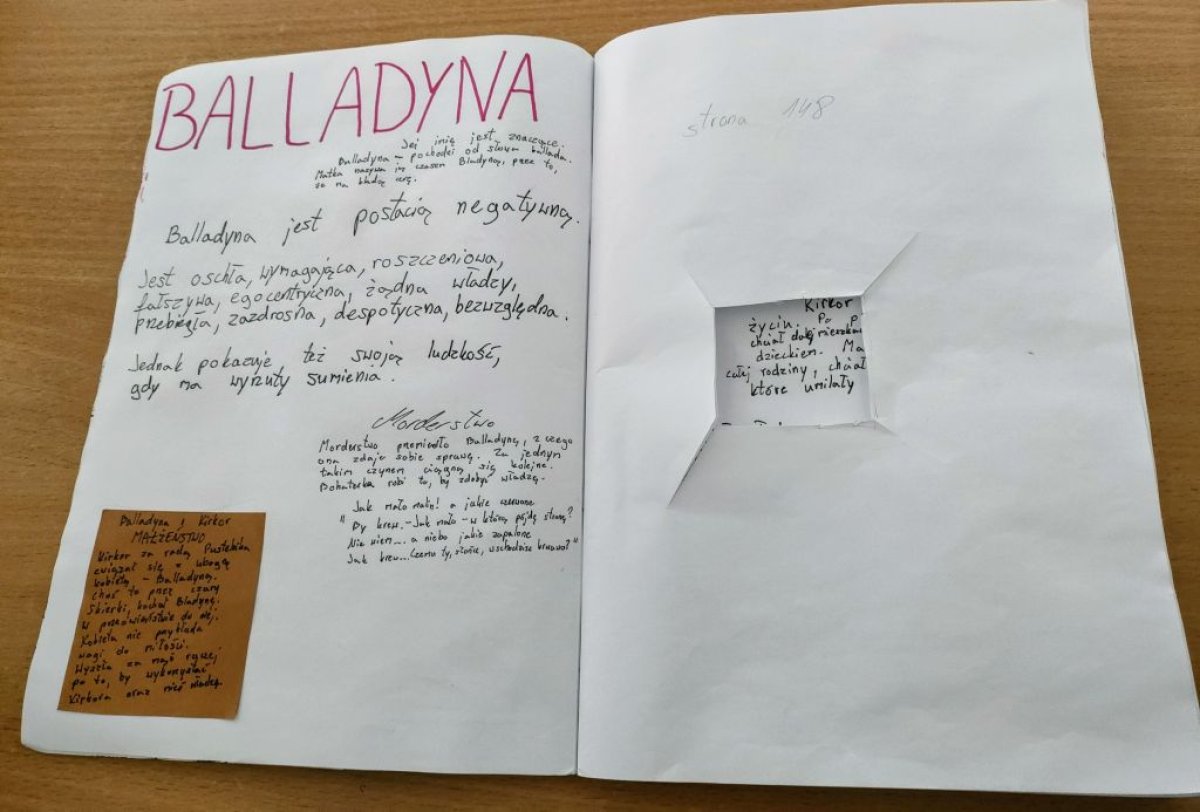 BALLADYNA
Jej imię jest znaczące.
Balladyna - pochodzi od słowa ballada.
Matka nazywa ją czasem Bladyną, przez to,
że ma bladą cerę.
Balladyna jest postacią negatywną.
Jest oschła, wymagająca, roszczeniowa,
fałszywa, egocentryczna, żądna władzy,
przebiegła, zazdrosna, despotyczna, bezwzględna.
Jednak pokazuje też swoją ludzkość,
gdy ma wyrzuty sumienia.
Morderstwo
Morderstwo przemieniło Balladynę, z czego
ona zdaje sobie sprawę. Za jednym
takim czynem ciągną się kolejne.
Bohaterka robi to, by zdobyć władzę.
Jak mało malin! a jakie czerwone
"By krew. - Jak mało - w którą pójdę stronę?
Nie wiem... a niebo jakie zapalone
Jak krew... Czemu ty, słońce, wschodzisz krwawo?"
Balladyna i Kirkor
MAŁŻEŃSTWO
Kirkor za radą Pustelnika
związał się z ubogą
kobietą - Balladyną.
Choć to przez czary
Skierki, kochał Bladynę.
W przeciwieństwie do niej.
Kobieta nie przykłada
wagi do miłości.
Wyszła za mąż raczej
po to, by wykorzystać
Kirkora oraz mieć władzę.
strona 148
Kirkor
życiu. Po p
chciał dalej mieszka
dzieckiem. Ma
całej rodziny, chciał
które umilały